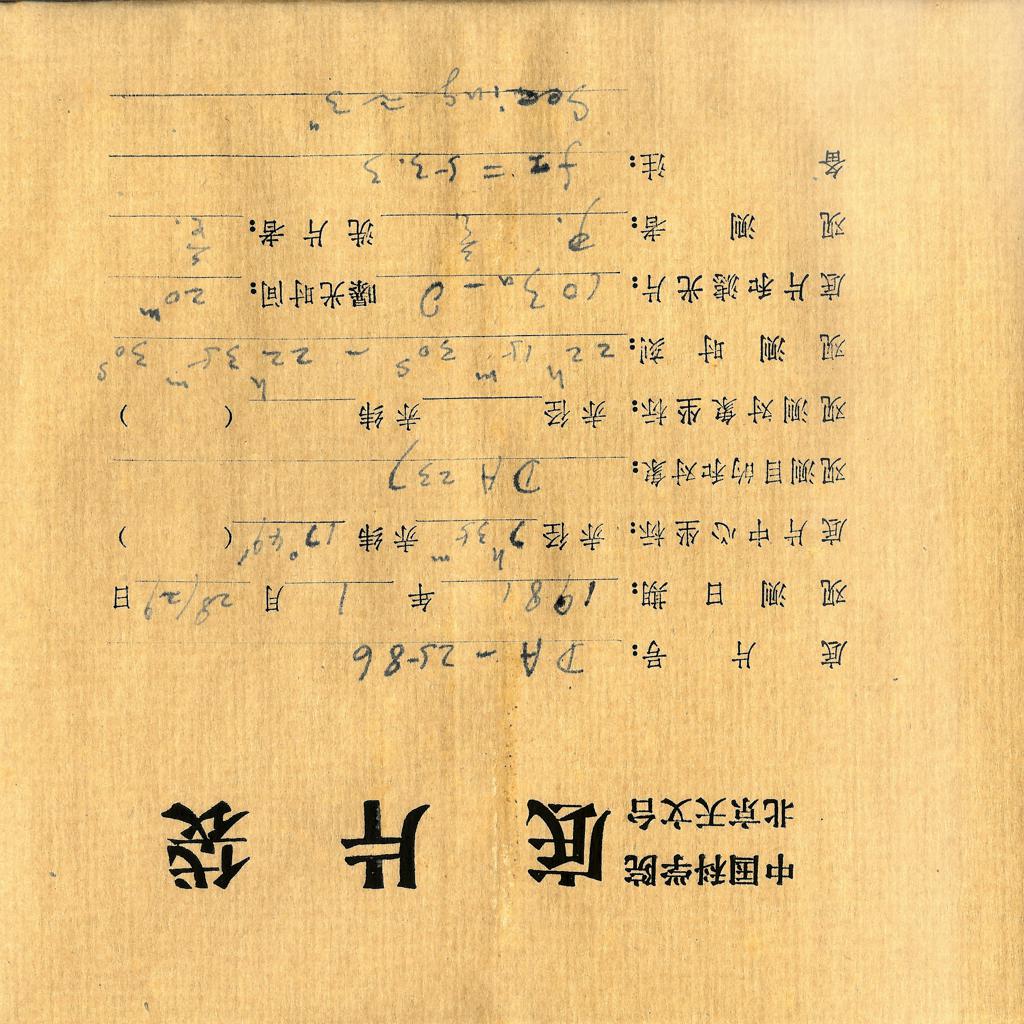 中国科学院
北京天文台
底片袋
底片号: DA-2586
观测日期: 1981年1月28/29日
底片中心坐标: 赤径 7h35m 赤纬 17°49′ ( )
观测目的和对象: DA237
观测对象坐标: 赤径 赤纬 ( )
观测时刻: 22h15m30s - 22h35m30s
底片和滤光片: 103a-D 曝光时间: 20m
观测者: 洗片者:
备注: fz = 53.3
Seeing ≈ 3"